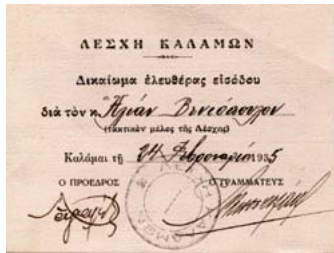 ΛΕΣΧΗ ΚΑΛΑΜΩΝ
Δικαίωμα ἐλευθέρας εἰσόδου
διὰ τὸν κ. Ἠλίαν
(τακτικὸν μέλος τῆς Λέσχης)
Καλάμαι τῇ 24 Φεβρουαρίου 1935
Ο ΠΡΟΕΔΡΟΣ Ο ΓΡΑΜΜΑΤΕΥΣ